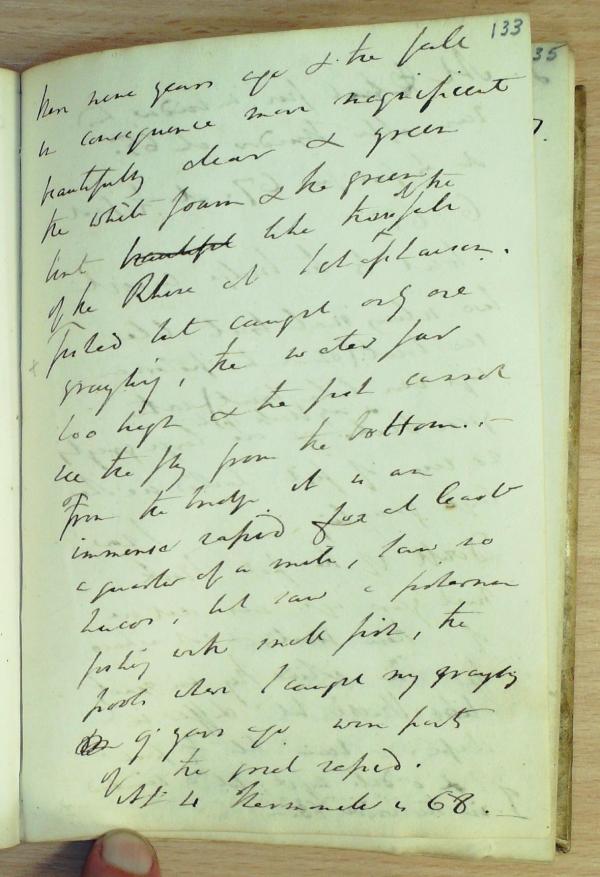 133
35
than nine years ago & the fall
in consequence more magnificent
beautifully clear & green
the white foam & the green
tint beautiful like those of the falls
of the Rhine at Schaffhausen.
Fished but caught only one
grayling, the water far
too high & the fish cannot
see the fly from the bottom. –
From the bridge it is an
immense rapid for at least
a quarter of a mile, saw no
hucos, but saw a fisherman
fishing with small fish, the
pools where I caught my grayling
9 years ago were parts
of the great rapid.
At 4 Thermometer is 68.